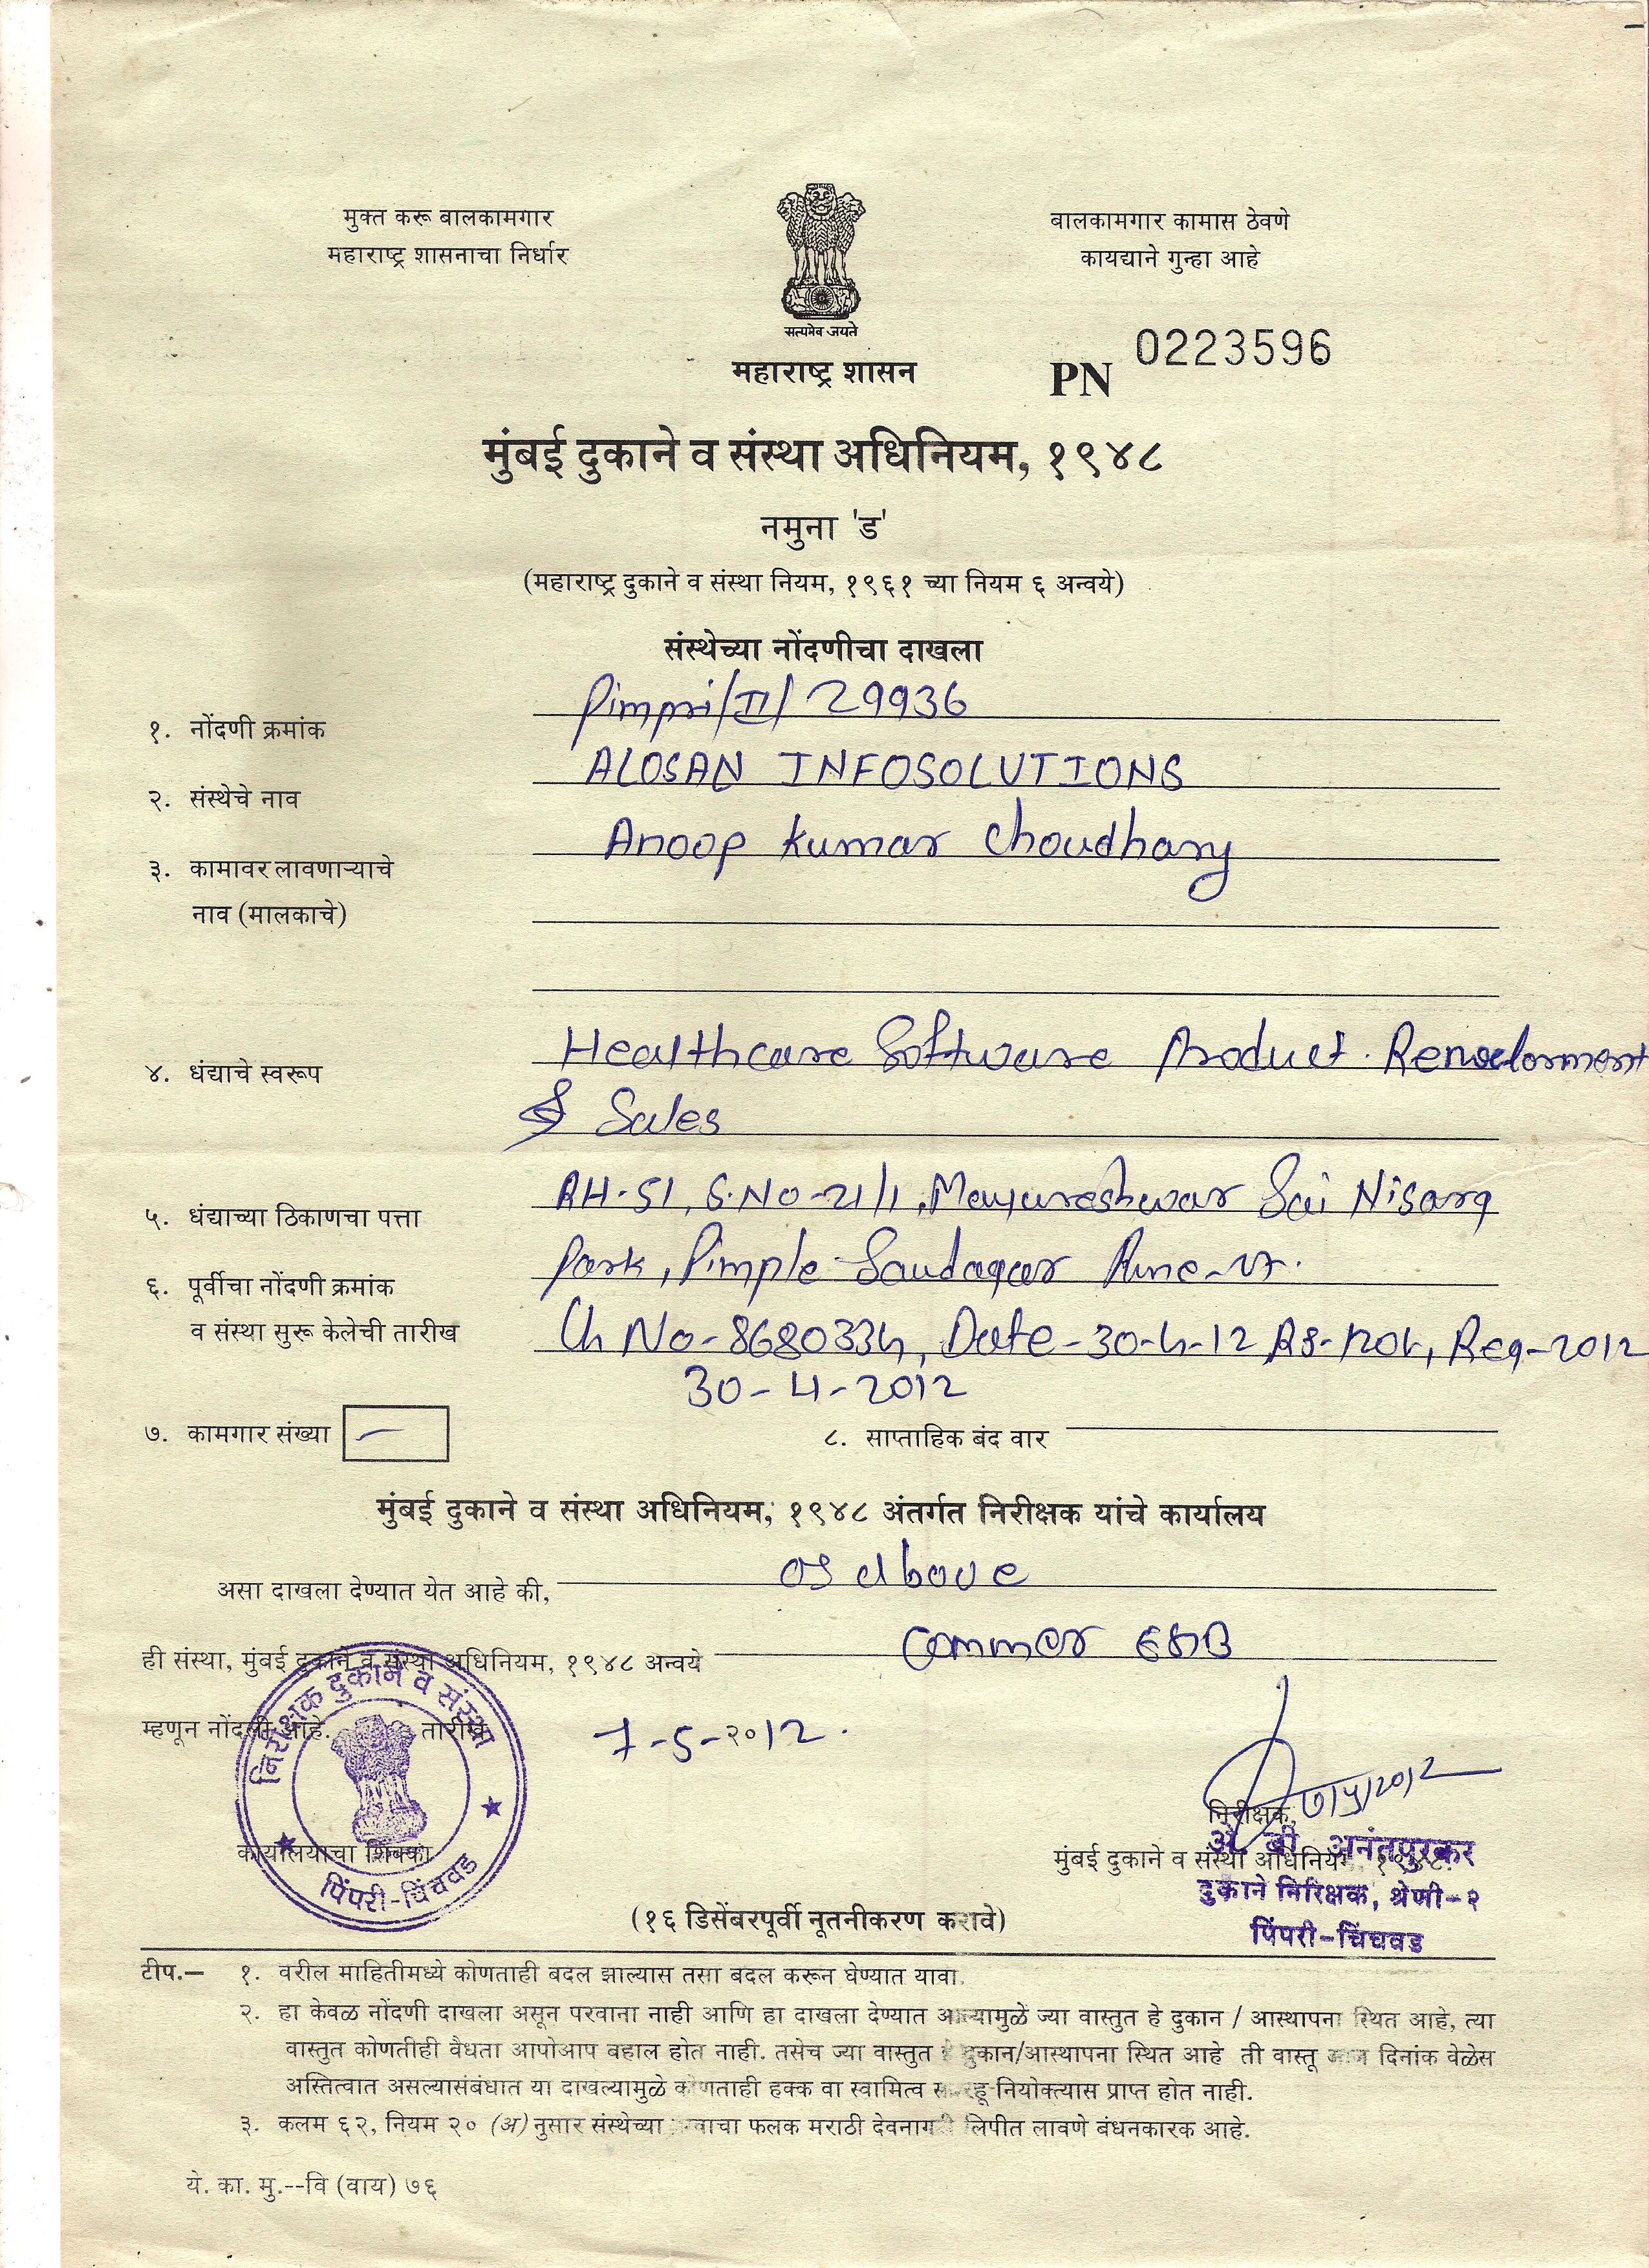 मुक्त करू बालकामगार
महाराष्ट्र शासनाचा निर्धार
बालकामगार कामास ठेवणे
कायद्याने गुन्हा आहे
सत्यमेव जयते
महाराष्ट्र शासन
PN 0223596
मुंबई दुकाने व संस्था अधिनियम, १९४८
नमुना 'ड'
(महाराष्ट्र दुकाने व संस्था नियम, १९६१ च्या नियम ६ अन्वये)
संस्थेच्या नोंदणीचा दाखला
१. नोंदणी क्रमांक Pimpri/II/ 29936
२. संस्थेचे नाव ALOSAN INFOSOLUTIONS
३. कामावर लावणाऱ्याचे Anoop Kumar Choudhary
नाव (मालकाचे)
४. धंद्याचे स्वरूप Healthcare Software Product
& Sales
५. धंद्याच्या ठिकाणचा पत्ता RH-51, S.No-21/1, Mayureshwar Sai Nisarg
Park, Pimple Saudagar Pune-
६. पूर्वीचा नोंदणी क्रमांक
व संस्था सुरू केलेची तारीख Ch No-8680334, Date-30-4-12 Reg-2012
30-4-2012
७. कामगार संख्या —
८. साप्ताहिक बंद वार
मुंबई दुकाने व संस्था अधिनियम, १९४८ अंतर्गत निरीक्षक यांचे कार्यालय
असा दाखला देण्यात येत आहे की, as above
ही संस्था, मुंबई दुकाने व संस्था अधिनियम, १९४८ अन्वये Commer
म्हणून नोंदली आहे. तारीख 7-5-2012.
निरीक्षक दुकाने व संस्था
पिंपरी-चिंचवड
कार्यालयाचा शिक्का
7/5/2012
निरीक्षक,
मुंबई दुकाने व संस्था अधिनियम, १९४८
अे. बी. अनंतपुरकर
दुकाने निरिक्षक, श्रेणी-२
पिंपरी-चिंचवड
(१६ डिसेंबरपूर्वी नूतनीकरण करावे)
टीप.— १. वरील माहितीमध्ये कोणताही बदल झाल्यास तसा बदल करून घेण्यात यावा.
२. हा केवळ नोंदणी दाखला असून परवाना नाही आणि हा दाखला देण्यात आल्यामुळे ज्या वास्तुत हे दुकान / आस्थापना स्थित आहे, त्या
वास्तुत कोणतीही वैधता आपोआप बहाल होत नाही. तसेच ज्या वास्तुत हे दुकान/आस्थापना स्थित आहे ती वास्तू दिनांक वेळेस
अस्तित्वात असल्यासंबंधात या दाखल्यामुळे कोणताही हक्क वा स्वामित्व नियोक्त्यास प्राप्त होत नाही.
३. कलम ६२, नियम २० (अ) नुसार संस्थेच्या नावाचा फलक मराठी देवनागरी लिपीत लावणे बंधनकारक आहे.
ये. का. मु.--वि (वाय) ७६